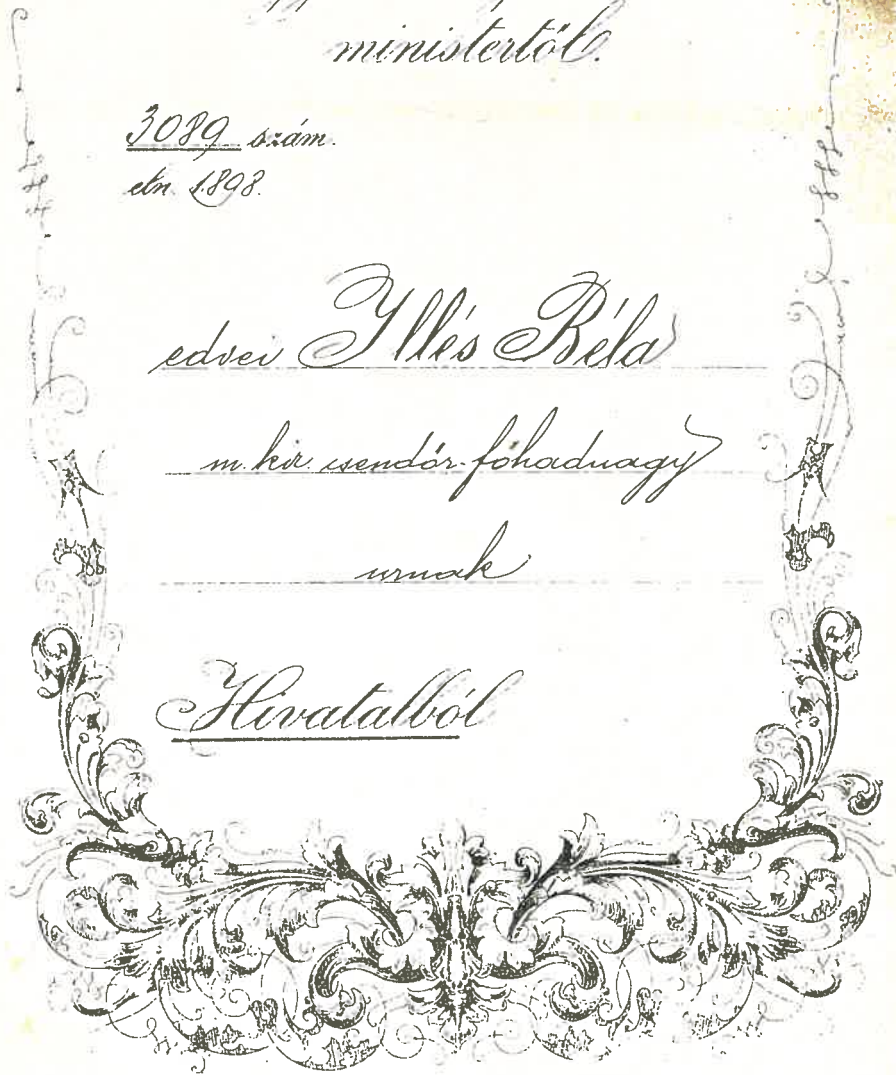 ministertől.
3089 szám.
eln. 1898.
edvei Illés Béla
m. kir. csendőr-főhadnagy
urnak
Hivatalból